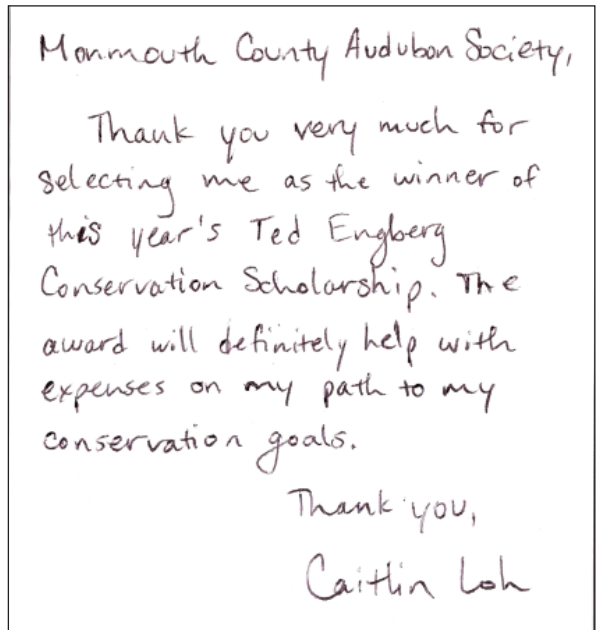 Monmouth County Audubon Society,
Thank you very much for
selecting me as the winner of
this year's Ted Engberg
Conservation Scholarship. The
award will definitely help with
expenses on my path to my
conservation goals.
Thank you,
Caitlin Loh